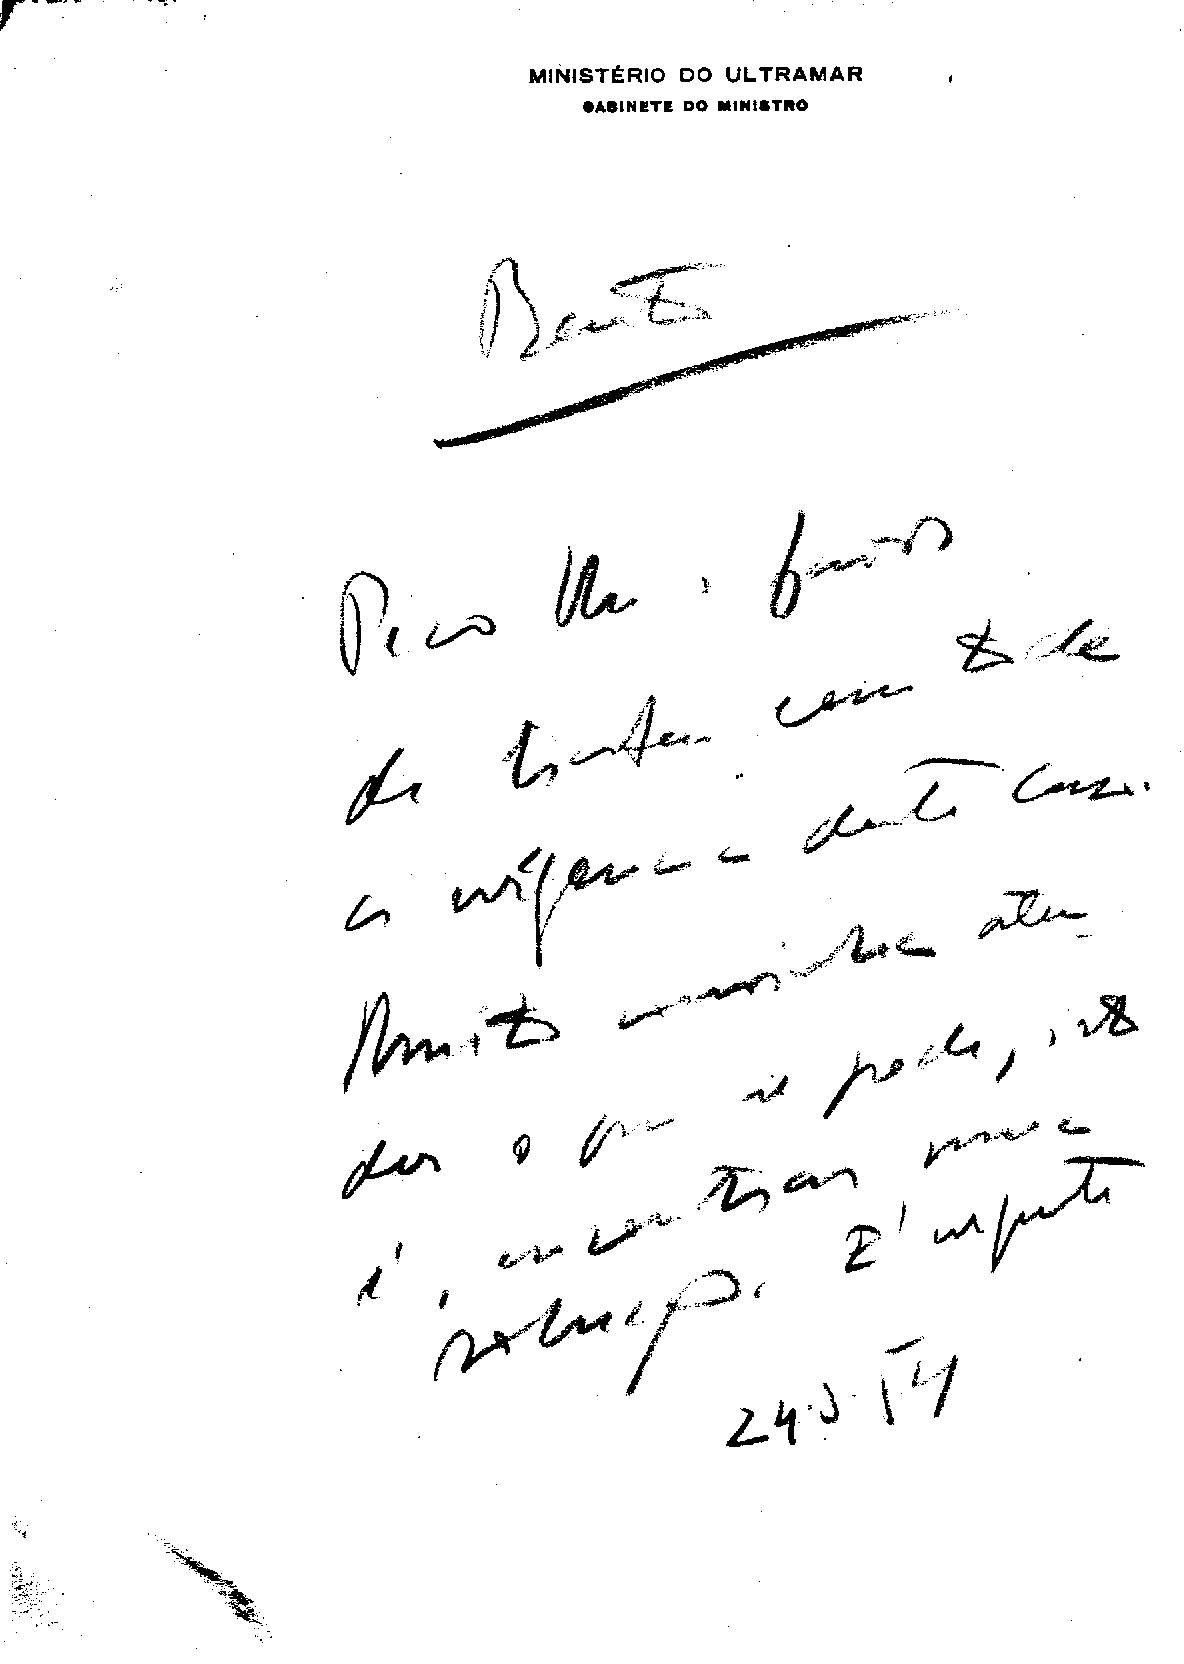 MINISTÉRIO DO ULTRAMAR
GABINETE DO MINISTRO
Bento
Peço lhe o favor
de tratar com toda
a urgência deste caso.
Permito
der o que se pede, isto
é, encontrar uma
solução. É urgente
24.5.54